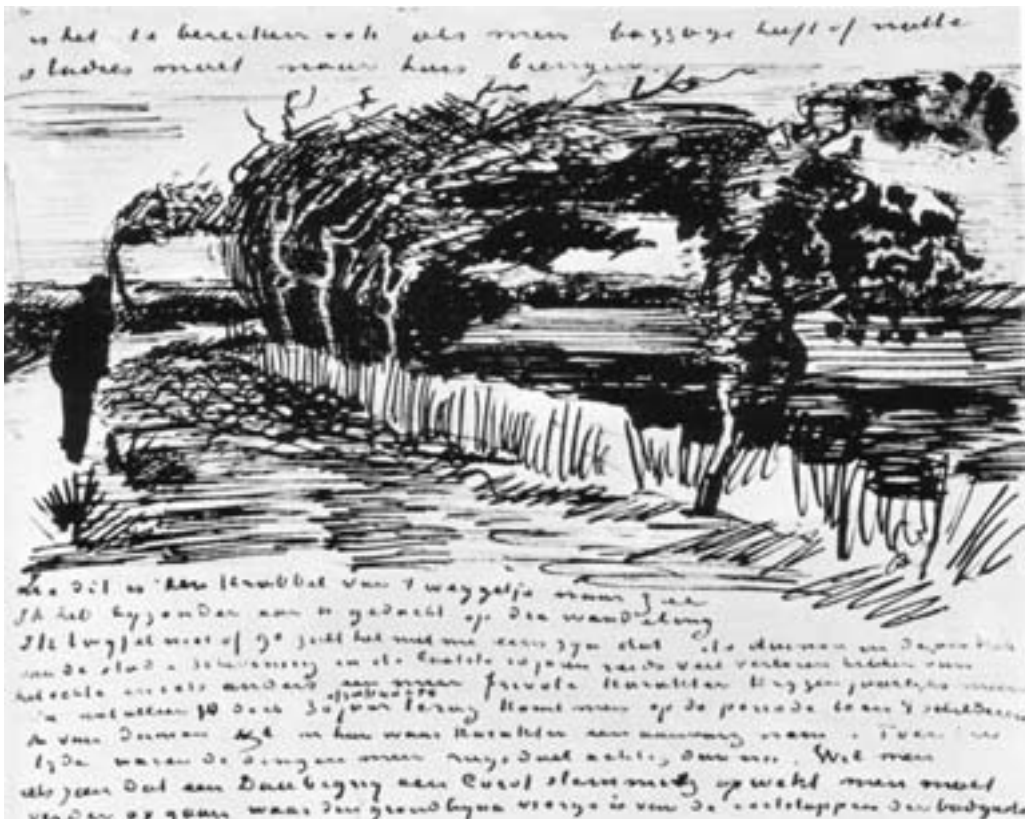 is het te bereiken ook als men baggage heeft of natte
studies moet naar huis brengen.
dit is een krabbel van 't weggetje naar zee
Ik heb byzonder aan U gedacht op die wandeling
Ik twyfel niet of ge zult het met me eens zyn dat de duinen in
van de stad Scheveningen in de laatste jaren reeds veel verloren hebben van
het echte en iets anders een meer frivole karakter krygen
niet alleen 10 doch 30 jaar terug komt men op de periode toen 't schilderen
van duinen in hun waar karakter een aanvang nam. Toen
tyde waren de dingen meer Ruysdael achtig dan nu. Wil men
iets zien dat een Daubigny een Corot stemming opwekt men moet
verder op gaan waar de grond byna vierge is van de voetstappen der badgasten